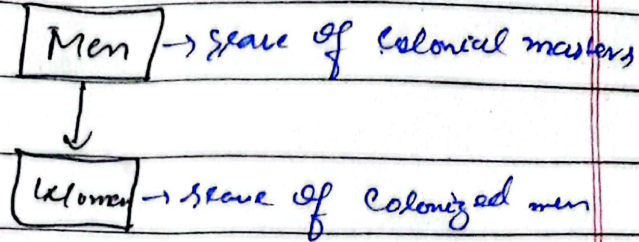 Men → slave of colonial masters
↓
Women → slave of colonized men